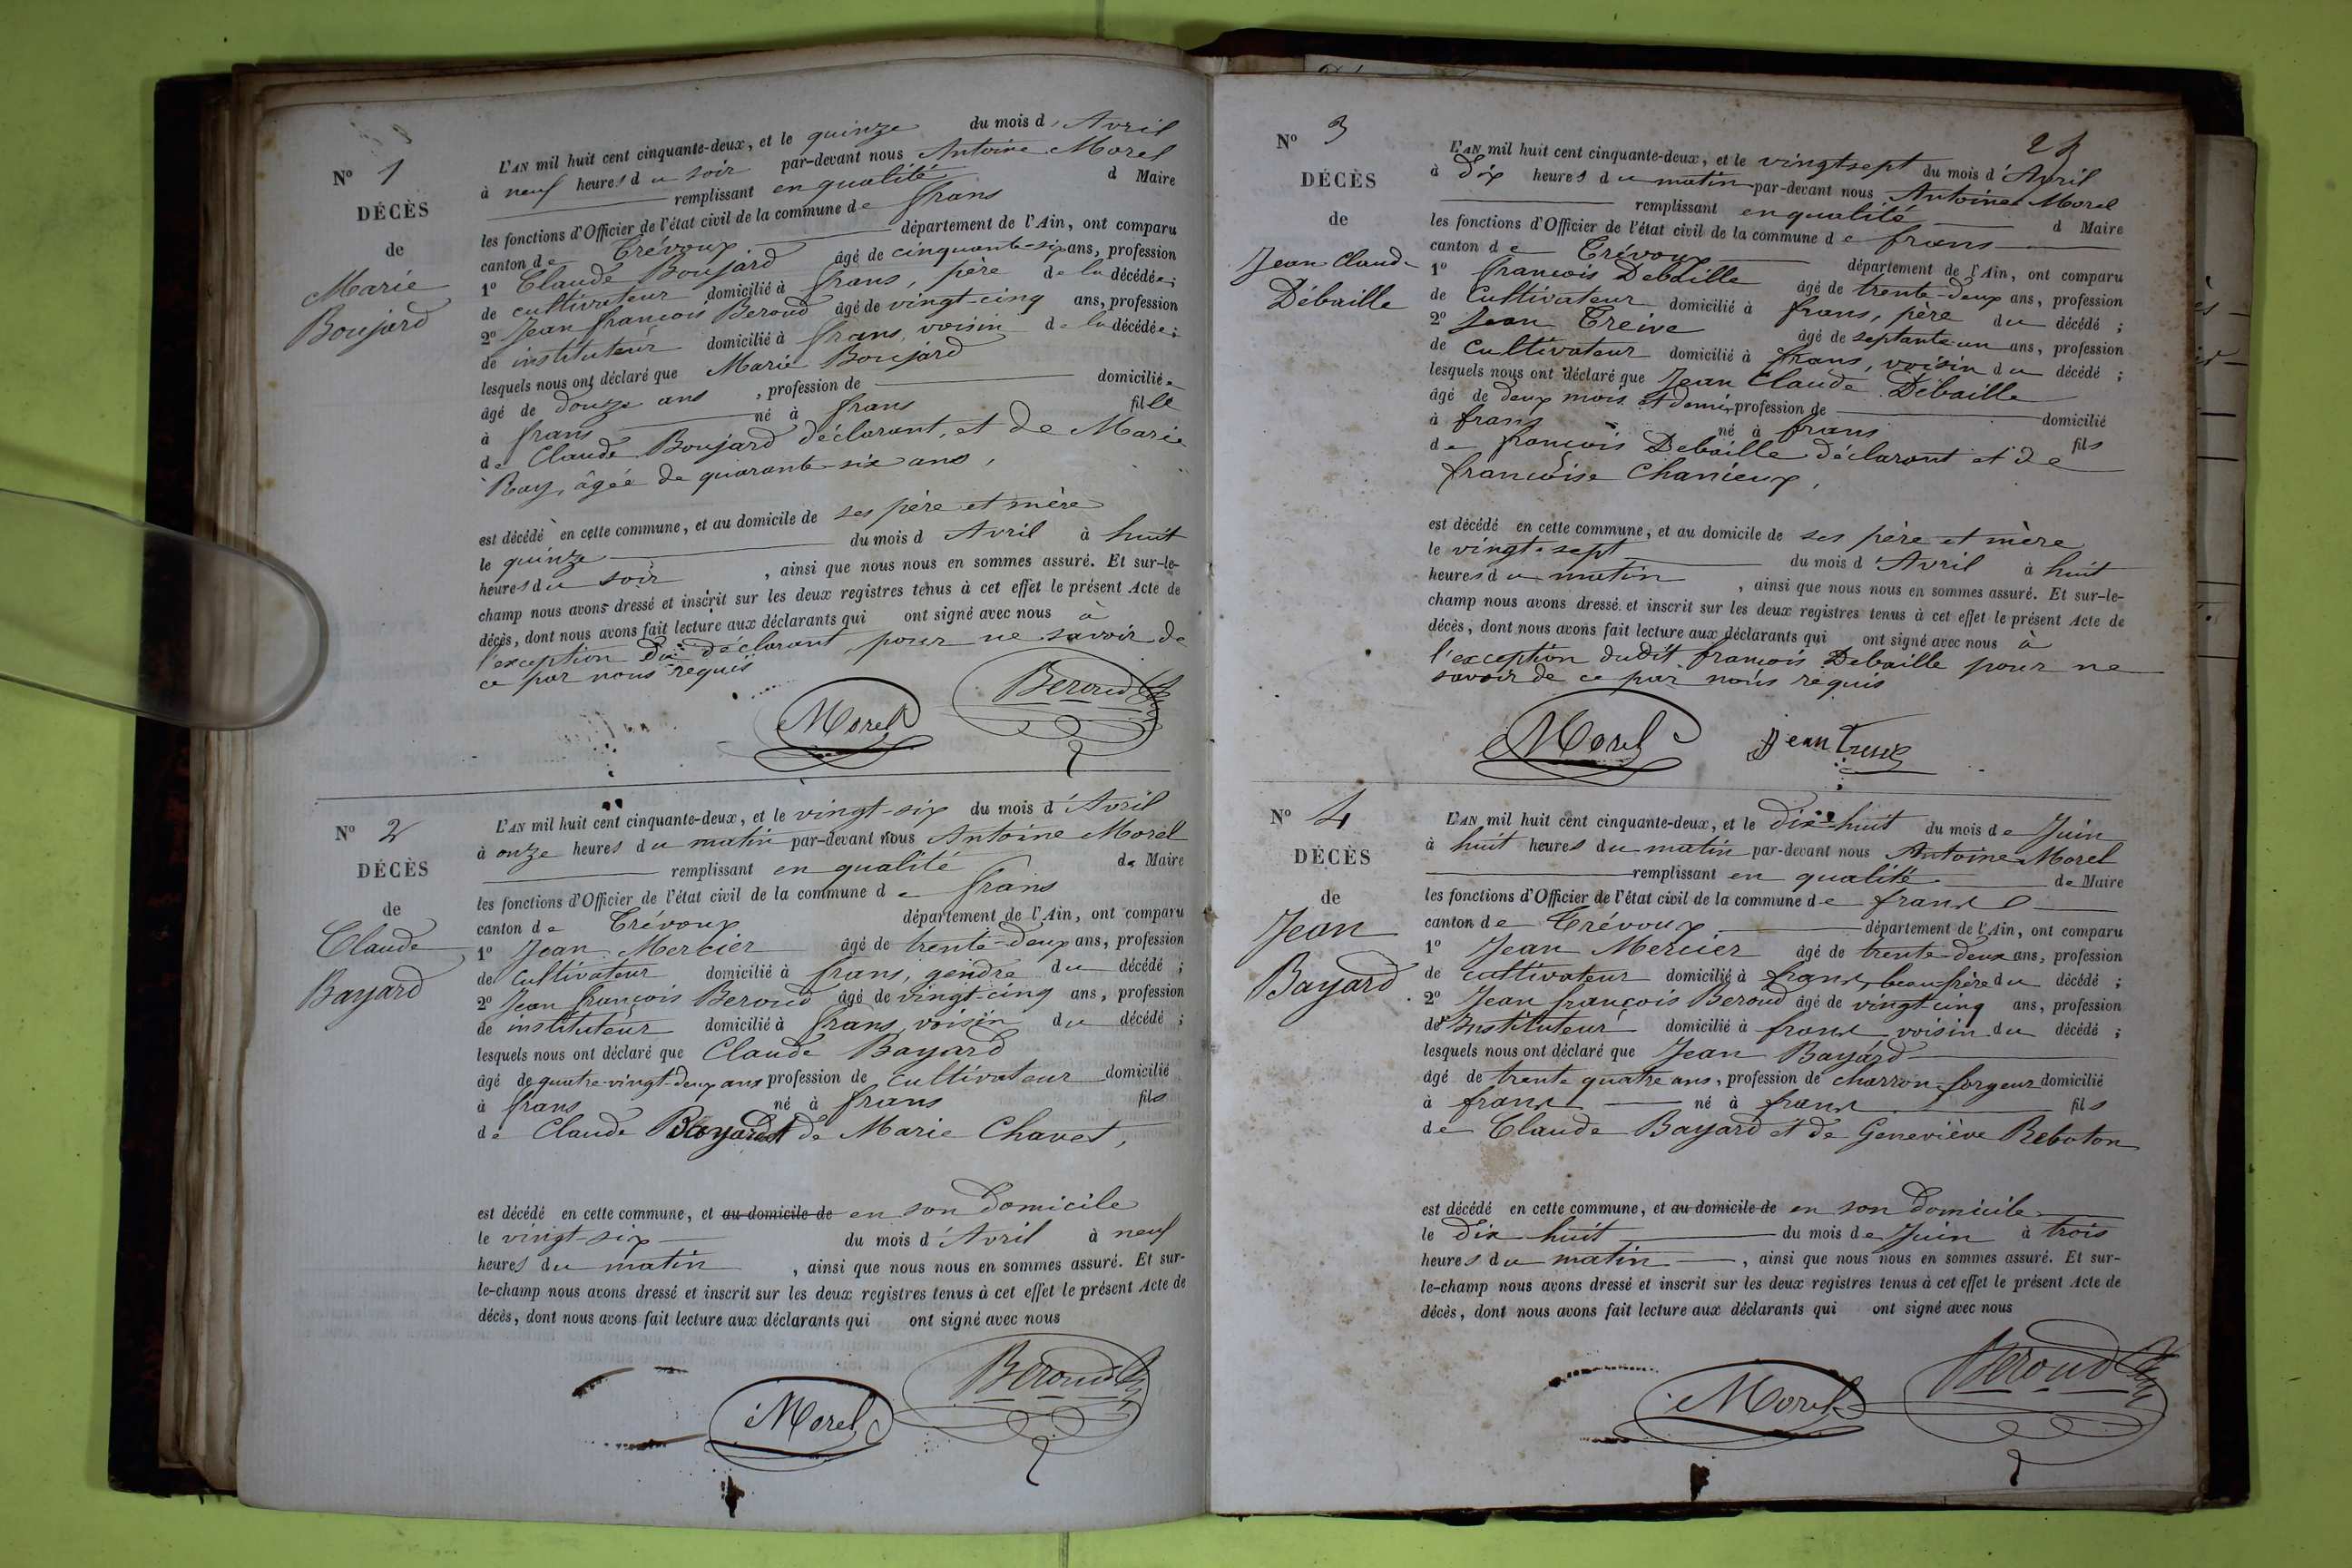 N° 1
DÉCÈS
de
Marie
Boujard
L'AN mil huit cent cinquante-deux, et le quinze du mois d'Avril
à neuf heures du soir par-devant nous Antoine Morel
remplissant en qualité d Maire
les fonctions d'Officier de l'état civil de la commune de frans
canton de Trévoux département de l'Ain, ont comparu
1° Claude Boujard âgé de cinquante-six ans, profession
de cultivateur domicilié à frans, père de la décédée;
2° Jean françois Beroud âgé de vingt-cinq ans, profession
de instituteur domicilié à frans, voisin de la décédée;
lesquels nous ont déclaré que Marie Boujard
âgé de douze ans, profession de domiciliée
à frans né à frans fille
de Claude Boujard déclarant, et de Marie
Ray, âgée de quarante-six ans,
est décédé en cette commune, et au domicile de ses père et mère
le quinze du mois d Avril à huit
heures du soir, ainsi que nous nous en sommes assuré. Et sur-le-
champ nous avons dressé et inscrit sur les deux registres tenus à cet effet le présent Acte de
décès, dont nous avons fait lecture aux déclarants qui ont signé avec nous à
l'exception du déclarant, pour ne savoir de
ce par nous requis
Morel Beroud
N° 2
DÉCÈS
de
Claude
Bayard
L'AN mil huit cent cinquante-deux, et le vingt-six du mois d'Avril
à onze heures du matin par-devant nous Antoine Morel
remplissant en qualité de Maire
les fonctions d'Officier de l'état civil de la commune de frans
canton de Trévoux département de l'Ain, ont comparu
1° Jean Mercier âgé de trente-deux ans, profession
de cultivateur domicilié à frans, gendre du décédé;
2° Jean françois Beroud âgé de vingt-cinq ans, profession
de instituteur domicilié à frans, voisin du décédé;
lesquels nous ont déclaré que Claude Bayard
âgé de quatre-vingt-deux ans profession de cultivateur domicilié
à frans né à frans fils
de Claude Bayard et de Marie Chavet,
est décédé en cette commune, et au domicile de en son domicile
le vingt-six du mois d'Avril à neuf
heures du matin, ainsi que nous nous en sommes assuré. Et sur-
le-champ nous avons dressé et inscrit sur les deux registres tenus à cet effet le présent Acte de
décès, dont nous avons fait lecture aux déclarants qui ont signé avec nous
Morel Beroud
N° 3
DÉCÈS
de
Jean Claude
Débaille
L'AN mil huit cent cinquante-deux, et le vingt-sept du mois d'Avril
à dix heures du matin par-devant nous Antoine Morel
remplissant en qualité d Maire
les fonctions d'Officier de l'état civil de la commune de frans
canton de Trévoux département de l'Ain, ont comparu
1° françois Debaille âgé de trente-deux ans, profession
de Cultivateur domicilié à frans, père du décédé;
2° Jean Treive âgé de septante-un ans, profession
de Cultivateur domicilié à frans, voisin du décédé;
lesquels nous ont déclaré que Jean Claude Débaille
âgé de deux mois et demi, profession de domicilié
à frans né à frans fils
de françois Debaille déclarant et de
françoise Chanieux,
est décédé en cette commune, et au domicile de ses père et mère
le vingt-sept du mois d'Avril à huit
heures du matin, ainsi que nous nous en sommes assuré. Et sur-le-
champ nous avons dressé et inscrit sur les deux registres tenus à cet effet le présent Acte de
décès, dont nous avons fait lecture aux déclarants qui ont signé avec nous à
l'exception dudit françois Debaille pour ne
savoir de ce par nous requis
Morel Jean
N° 4
DÉCÈS
de
Jean
Bayard
L'AN mil huit cent cinquante-deux, et le dix-huit du mois de Juin
à huit heures du matin par-devant nous Antoine Morel
remplissant en qualité de Maire
les fonctions d'Officier de l'état civil de la commune de frans
canton de Trévoux département de l'Ain, ont comparu
1° Jean Mercier âgé de trente-deux ans, profession
de cultivateur domicilié à frans, beau-frère du décédé;
2° Jean françois Beroud âgé de vingt-cinq ans, profession
d'Instituteur domicilié à frans voisin du décédé;
lesquels nous ont déclaré que Jean Bayard
âgé de trente quatre ans, profession de charron-forgeur domicilié
à frans né à frans fils
de Claude Bayard et de Geneviève Reboton
est décédé en cette commune, et au domicile de en son domicile
le dix-huit du mois de Juin à trois
heures du matin, ainsi que nous nous en sommes assuré. Et sur-
le-champ nous avons dressé et inscrit sur les deux registres tenus à cet effet le présent Acte de
décès, dont nous avons fait lecture aux déclarants qui ont signé avec nous
Morel Beroud